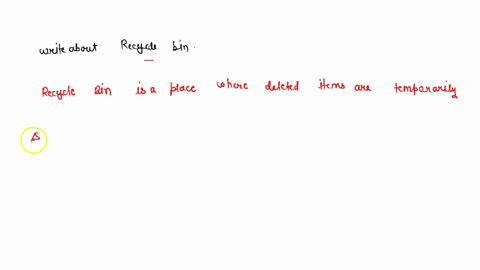 write about Recycle bin.
Recycle Bin is a place where deleted items are temporarily
s